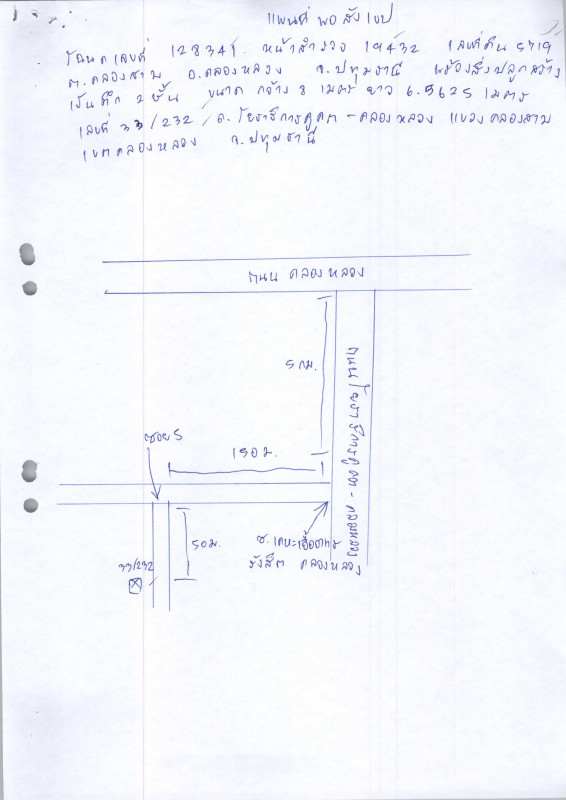 แผนที่ พอ สัง เขป
โฉนด เลขที่ 128341 หน้าสำรวจ 19432 เลขที่ดิน 5719
ต. คลองสาม อ. คลองหลวง จ. ปทุมธานี พร้อมสิ่งปลูกสร้าง
เป็นตึก 2 ชั้น ขนาด กว้าง 8 เมตร ยาว 6.5625 เมตร
เลขที่ 33/232 ถ. โยธาธิการคูคต - คลองหลวง แขวงคลองสาม
เขตคลองหลวง จ. ปทุมธานี
ถนน คลองหลวง
5 กม.
ถนนโยธาธิการคูคต - คลองหลวง
ซอย 5
150 ม.
50 ม.
ซ. เคหะเอื้ออาทร
รังสิต คลองหลวง
33/232